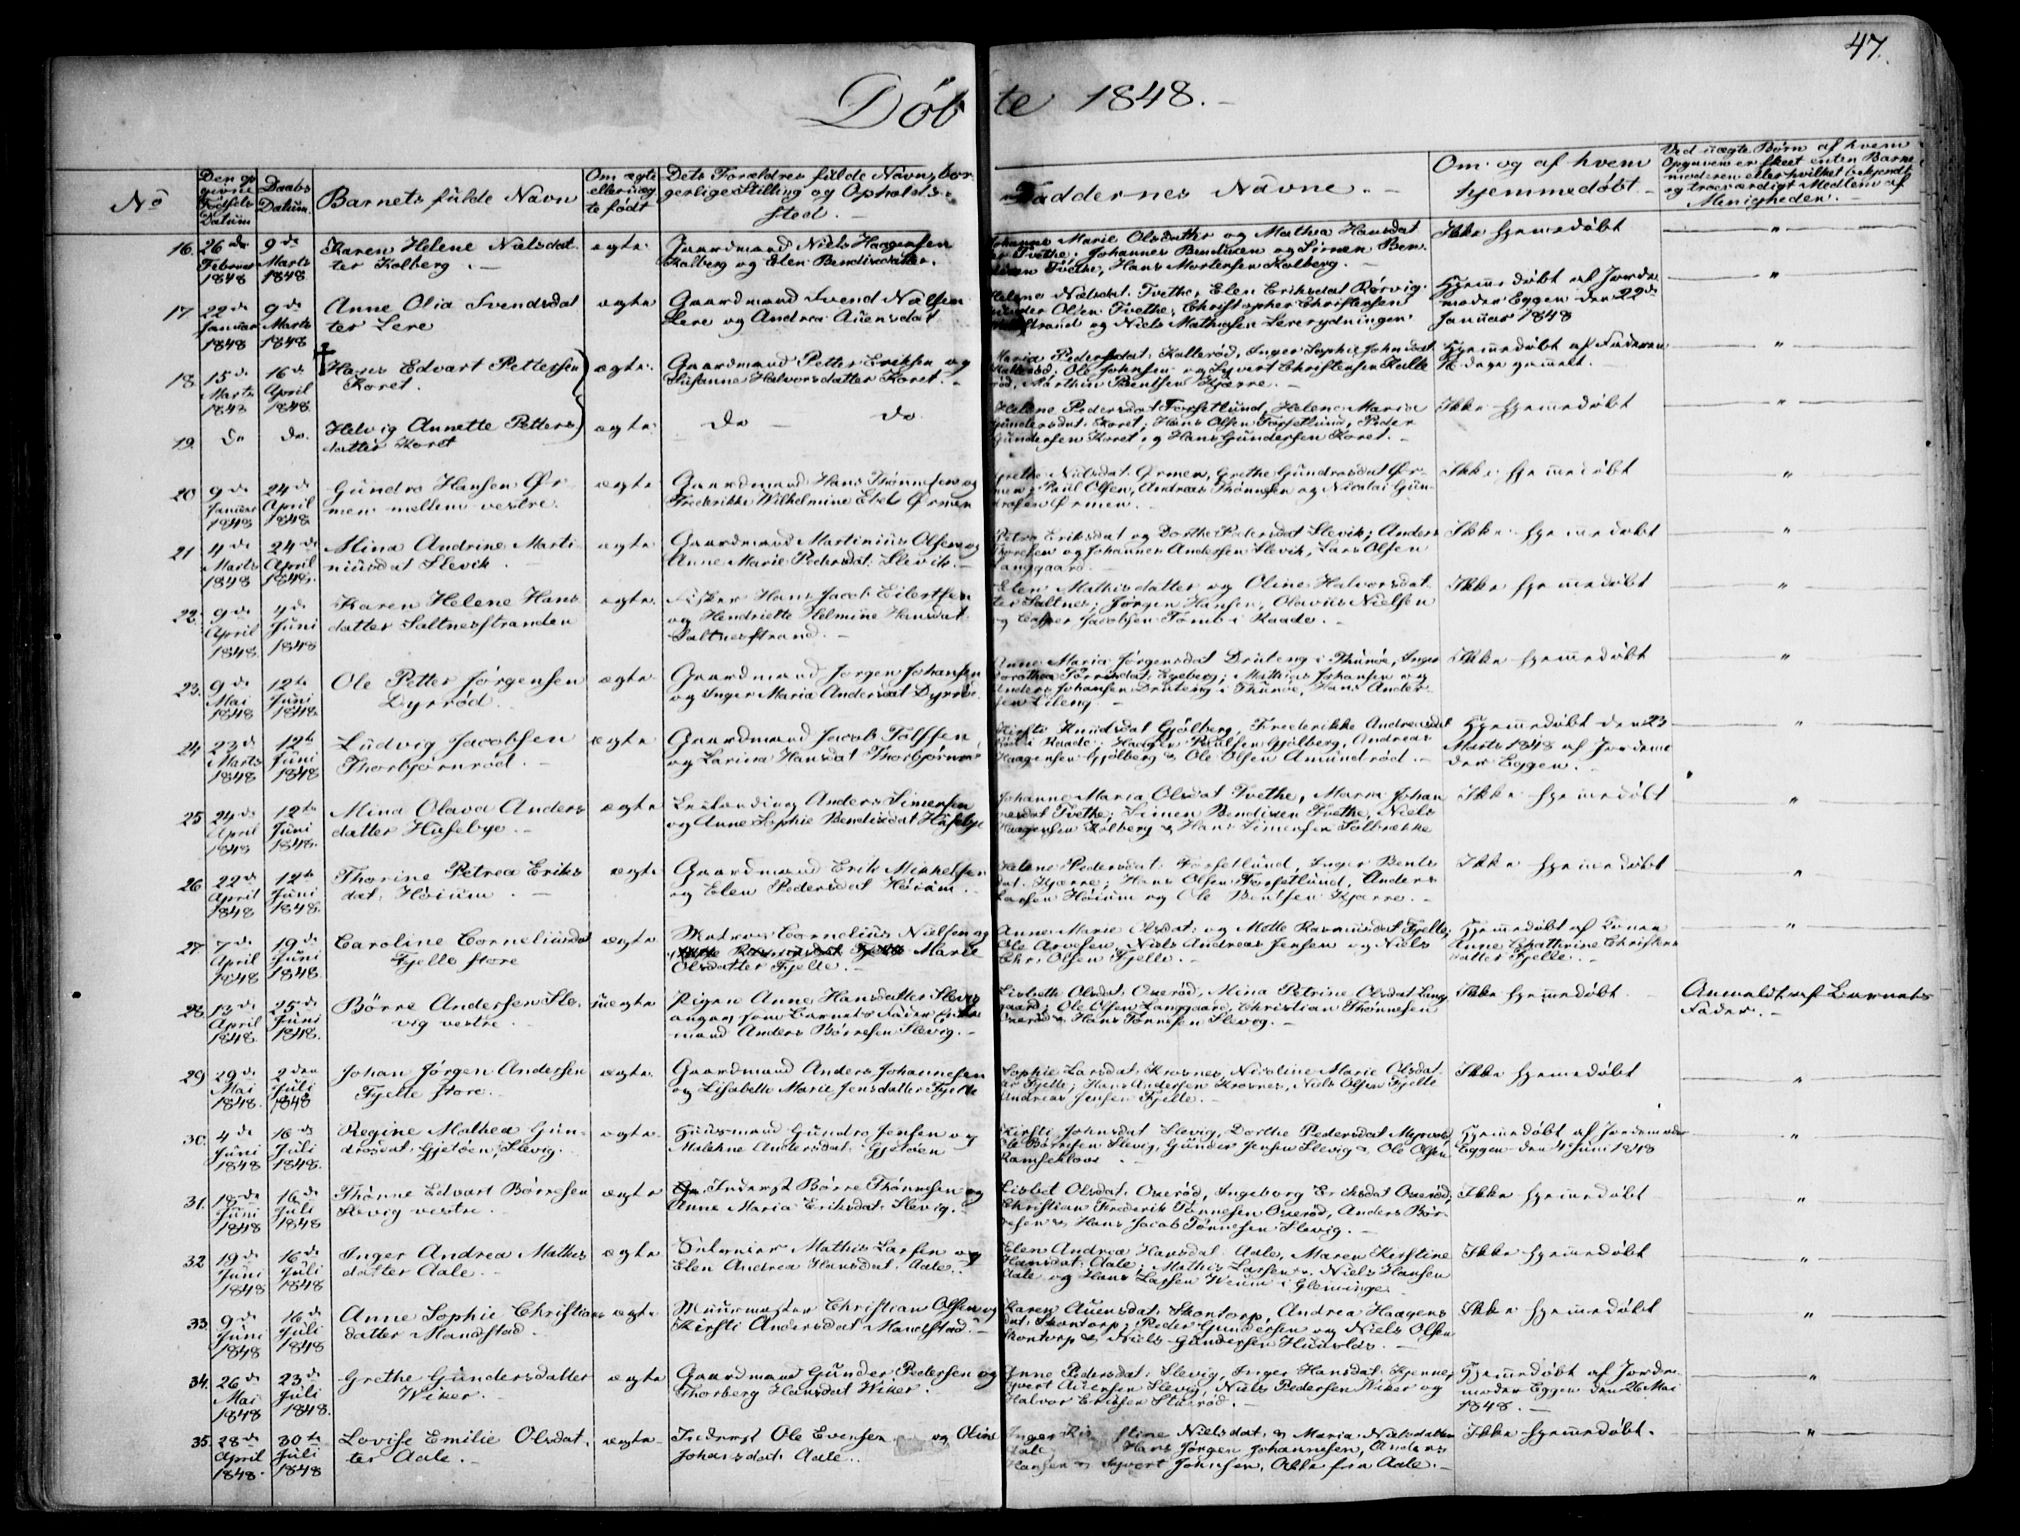 47.
Døbte 1848.
No
Den opgivne Fødsels Datum
Daabs Datum.
Barnets fulde Navn
Om ægte eller uægte født
Dets Forældres fulde Navn, borgerlige Stilling og Opholdssted.
Faddernes Navne.
Om og af hvem hjemmedøbt
Ved uægte Børn af hvem Opgaven er skeet enten Barnemoderen eller hvilket bekjendt og troeværdigt Medlem af Menigheden.
16. 26de Februar 1848 9de Marts 1848
Karen Helene Nielsdatter Kolberg. ægte.
Gaardmand Niels Haagensen
Kalberg og Elen Bendixdatter.
Johanne Marie Olsdatter og Mathea Hansdat
ter Tvethe, Johannes Bendixen og Simen Ben
dixen Tvethe, Hans Mortensen Kolberg.
Ikke hjemedøbt "
17 22de Januar 1848 9de Marts 1848
Anne Olia Svendsdatter Lere ægte
Gaardmand Svend Nielsen
Lere og Andrea Auensdat
Helene Nielsdat. Tvethe, Elen Eriksdat Rørvig
Olsen Tvethe, Christopher Christensen
strand og Niels Mathiesen Lererydningen
Hjemedøbt af Jordemoder Eggen den 22de Januar 1848 "
18. 15de Marts 1848 16de April 1848.
† Hans Edvart Pettersen Koret. ægte.
Gaardmand Petter Eriksen og
Susanne Halvorsdatter Koret.
Maria Pedersdat. Kallerød, Inger Sophie Johnsdat
Kallerød, Ole Johnsen og Syvert Christensen Kalle
rød, Morthin Bentsen Kjærre.
Hjemmedøbt af Faderen dage gammelt. "
19. do do.
Helvig Annette Pettersdatter Koret ægte.
do do
Helene Pedersdat Forsetlund, Helene Maria
Gundersdat. Koret, Hans Olsen Forsetlund, Peder
Gundersen Koret, og Hans Gundersen Koret.
Ikke hjemedøbt "
20 9de Januar 1848 24de April 1848.
Gundro Hansen Ørmen mellem vestre. ægte
Gaardmand Hans Thønnesen og
Frederikke Wilhelmine Ebel Ørmen
Grethe Nielsdat Ørmen, Grethe Gundrosdat Ør
men, Paul Olsen, Andreas Thønnesen og Nicolai Gun
drosen Ørmen.
Ikke hjemedøbt "
21 4de Marts 1848 24de April 1848.
Mina Andrine Martiniusdat Slevik. ægte
Gaardmand Martinius Olsen og
Anne Marie Pedersdat. Slevik.
Petra Eriksdat og Dorthe Pedersdat Slevik; Anders
Thoresen og Johannes Andersen Slevik, Lars Olsen
Langgaard.
Ikke hjemedøbt "
22. 9de April 1848. 4de Juni 1848
Karen Helene Hansdatter Saltnesstranden ægte.
Fisker Hans Jacob Eilertsen
og Hendriette Helmine Hansdat.
Saltnesstrand.
Elen Mathisdatter og Oline Halvorsdat
ter Saltnes; Jørgen Hansen, Olavus Nielsen
og Casper Jacobsen Tomb i Raade.
Ikke hjemedøbt "
23. 9de Mai 1848 12te Juni 1848.
Ole Petter Jørgensen Dyrrød. ægte.
Gaardmand Jørgen Johansen
og Inger Maria Andersdat Dyrrød.
Anne Maria Jørgensdat Druteng i Thunøe, Inger
Dorothea Torrisdat. Egeberg; Mathias Johansen og
Anders Johansen Druteng i Thunøe, Hans Ander
sen Lileng.
Ikke hjemedøbt "
24 23de Marts 1848 12te Juni 1848
Ludvig Jacobsen Thorbjørnrød. ægte
Gaardmand Jacob Tolfsen
og Larina Hansdat Thorbjørnrød
Kirste Knudsdat Gjølberg, Frederikke Andreasdat
i Raade; Haagen Paulsen Gjølberg, Andreas
Haagensen Gjølberg & Ole Olsen Amundrød.
Hjemedøbt den 23 Marts 1848 af Jordemoder Eggen. "
25 24de April 1848 12te Juni 1848.
Mina Olava Andersdatter Husebye. ægte
Anders Simensen
og Anne Sophie Bendixdat Husebye
Johanne Maria Olsdat Tvethe, Maria Johan
nesdat Tvethe; Simen Bendixen Tvethe, Niels
Haagensen Kolberg & Hans Simensen Solbrække
Ikke hjemedøbt "
26 22de April 1848 12te Juni 1848.
Thorine Petrea Eriksdat. Høium. ægte
Gaardmand Erik Mikkelsen
og Elen Pedersdat Høium.
Helene Pedersdat. Forsetlund, Inger Bents
dat. Kjærre; Hans Olsen Forsetlund, Anders
Larsen Høium og Ole Bentsen Kjærre.
Ikke hjemedøbt "
27. 7de April 1848 19de Juni 1848.
Caroline Corneliusdat Fjelle store ægte
Matros Cornelius Nielsen og
Marie
Olsdatter Fjelle.
Anne Marie Olsdat. og Mette Rasmusdat Fjelle;
Ole Arvesen, Niels Andreas Jensen og Niels
Chr. Olsen Fjelle.
Hjemedøbt af Konen Anne Chathrine Christensdatter Fjelle. "
28. 13de April 1848. 25de Juni 1848.
Børre Andersen Slevig vestre. uægte
Pigen Anne Hansdatter Slevig
angav som Barnets Fader
mand Anders Børresen Slevig.
Lisbeth Olsdat. Oxerød, Mina Petrine Olsdat Lang
gaard; Ole Olsen Langgaard, Christian Thønnesen
Oxerød & Hans Tønnesen Slevig.
Ikke hjemedøbt.
Anmeldt af Barnets Fader.
29 29de Mai 1848. 2den Juli 1848
Johan Jørgen Andersen Fjelle store. ægte.
Gaardmand Anders Johannesen
og Lisabette Marie Jensdatter Fjelle
Sophie Larsdat. Krosnes, Nicoline Marie Olsdat
ter Fjelle; Hans Andersen Krosnes, Niels Olsen Fjelle
Andreas Jensen Fjelle.
Ikke hjemedøbt "
30. 4de Juni 1848 16de Juli 1848.
Regine Mathea Gundrosdat. Gjetøen, Slevig. ægte.
Huusmand Gundro Jensen og
Malene Andersdat. Gjetøen
Kirsti Johnsdat Slevig, Dorthe Pedersdat Myrvold,
Ole Børresen Slevig, Gunder Jensen Slevig &, Ole Olsen
Ramseklove
Hjemedøbt af Jordemoder Eggen den 4 Juni 1848 "
31. 18de Juni 1848 16de Juli 1848
Thønne Edvart Børresen Slevig vestre. ægte
Inderst Børre Thønnesen og
Anne Maria Eriksdat. Slevig.
Lisbet Olsdat. Oxerød, Ingeborg Eriksdat Oxerød,
Christian Frederik Tønnesen Oxerød, Anders Bør
resen &, Hans Jacob Tønnesen Slevig.
Ikke hjemedøbt "
32 19de Juni 1848 16de Juli 1848
Inger Andrea Mathisdatter Aale. ægte
Mathis Larsen og
Elen Andrea Hansdat. Aale.
Elen Andrea Hansdat. Aale, Maren Kirstine
Hansdat. Aale; Mathis Larsen &. Niels Hansen
Aale og Hans Larsen Weum i Glemminge
Ikke hjemedøbt "
33. 9de Juni 1848 16de Juli 1848
Anne Sophie Christiansdatter Mandstad. ægte
Muurmester Christian Olsen og
Kirsti Andersdat Mandstad.
Karen Auensdat. Skontorp, Andrea Haagens
dat. Skontorp; Peder Gundersen og Niels Olsen
Skontorp &, Niels Gundersen
Ikke hjemedøbt "
34. 26de Mai 1848 23de Juli 1848.
Grethe Gundersdatter Wiker. ægte
Gaardmand Gunder Pedersen og
Thorberg Hansdat Wiker.
Anne Pedersdat. Slevig, Inger Hansdat. Kjenne,
Syvert Auensen Slevig, Niels Pedersen Wiker og
Halvor Eriksen
Hjemedøbt af Jordemoder Eggen den 26 Mai 1848. "
35. 28de April 1848. 30te Juli 1848
Lovise Emilie Olsdatter Aale. ægte
Inderst Ole Evensen og Oline
Johansdat. Aale.
Inger stine Nielsdat. & Maria Nielsdatter
Aale Hans Jørgen Johannesen, Anders
Hansen & Syvert Johnsen, Alle fra Aale.
Ikke hjemedøbt. "